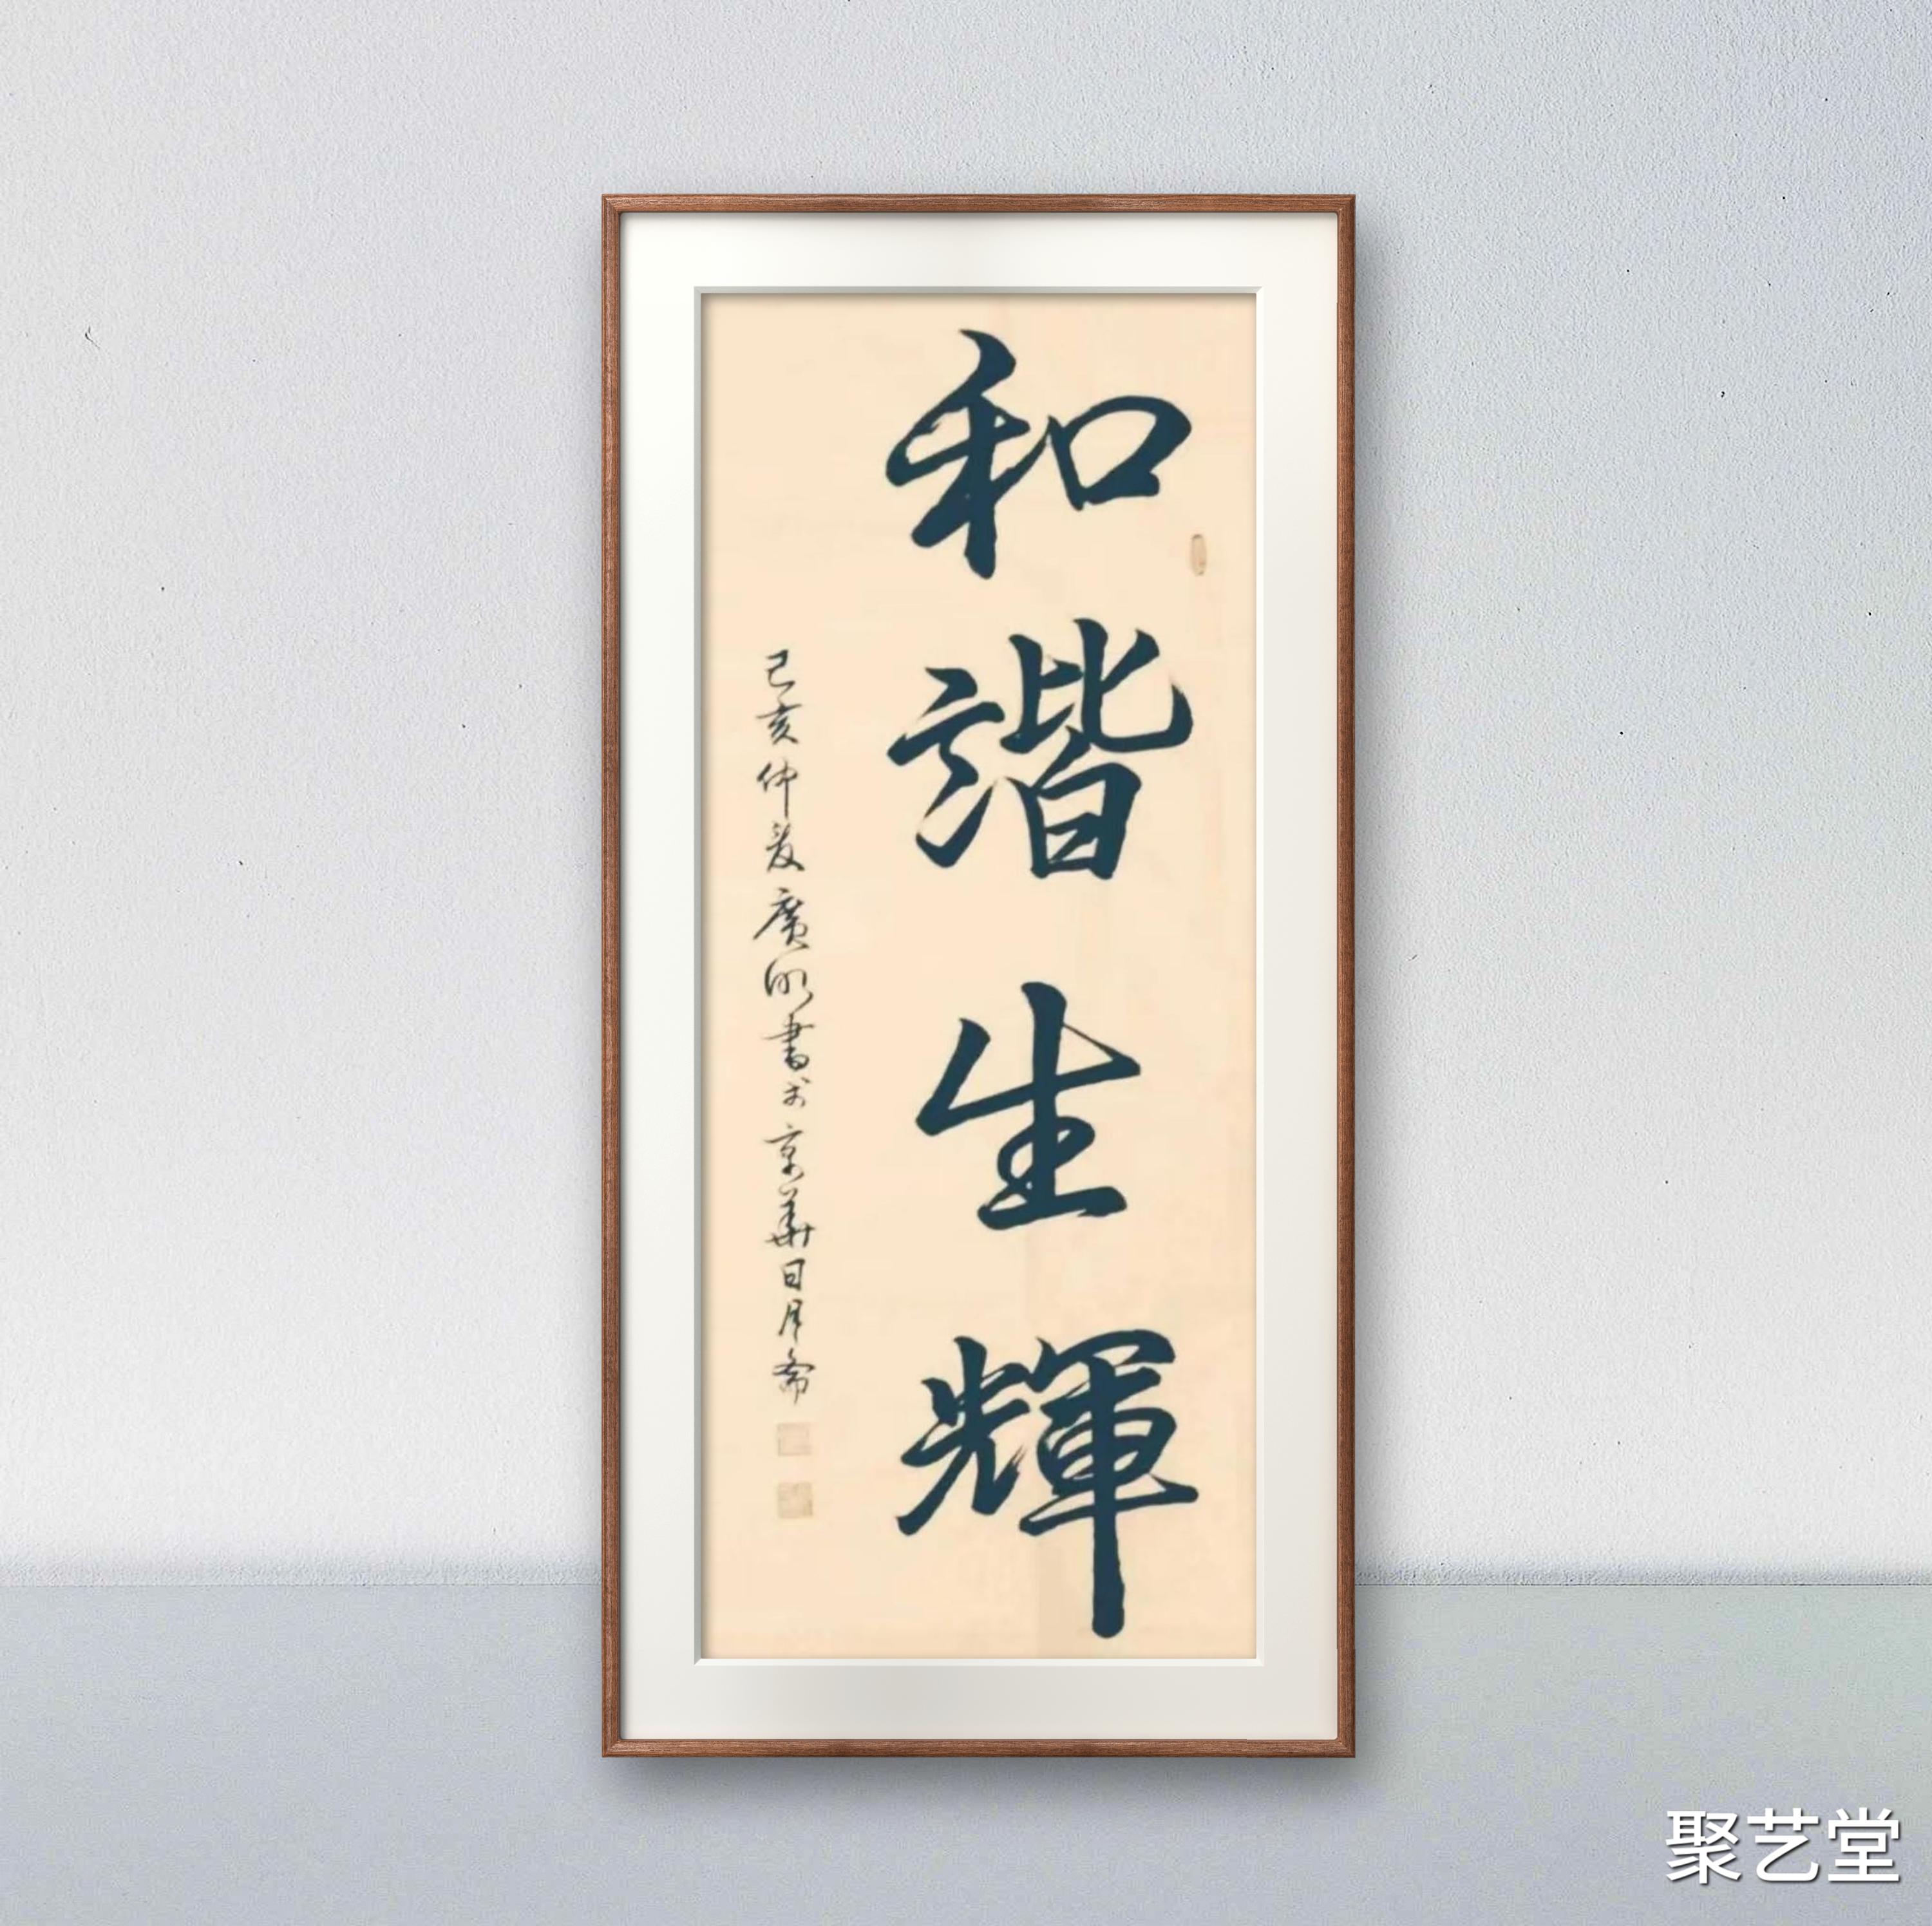 和諧生輝
己亥仲夏廣明書於京華日月齋
聚艺堂